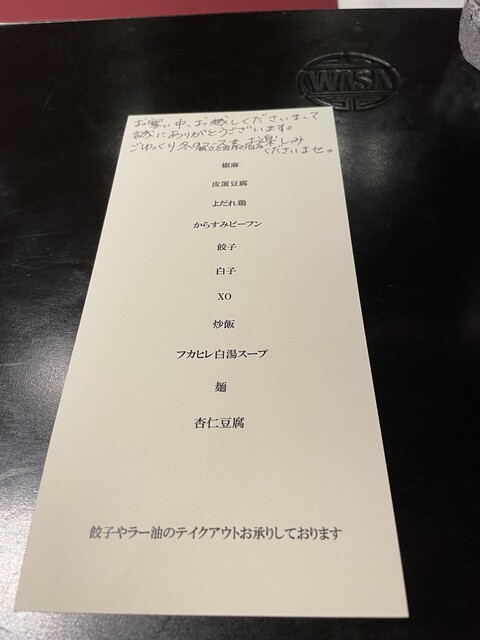 WASA
お寒い中、お越しくださいまして
誠にありがとうございます。
ごゆっくり冬の お楽しみ
くださいませ。
椒麻
皮蛋豆腐
よだれ鶏
からすみビーフン
餃子
白子
XO
炒飯
フカヒレ白湯スープ
麺
杏仁豆腐
餃子やラー油のテイクアウトお承りしております